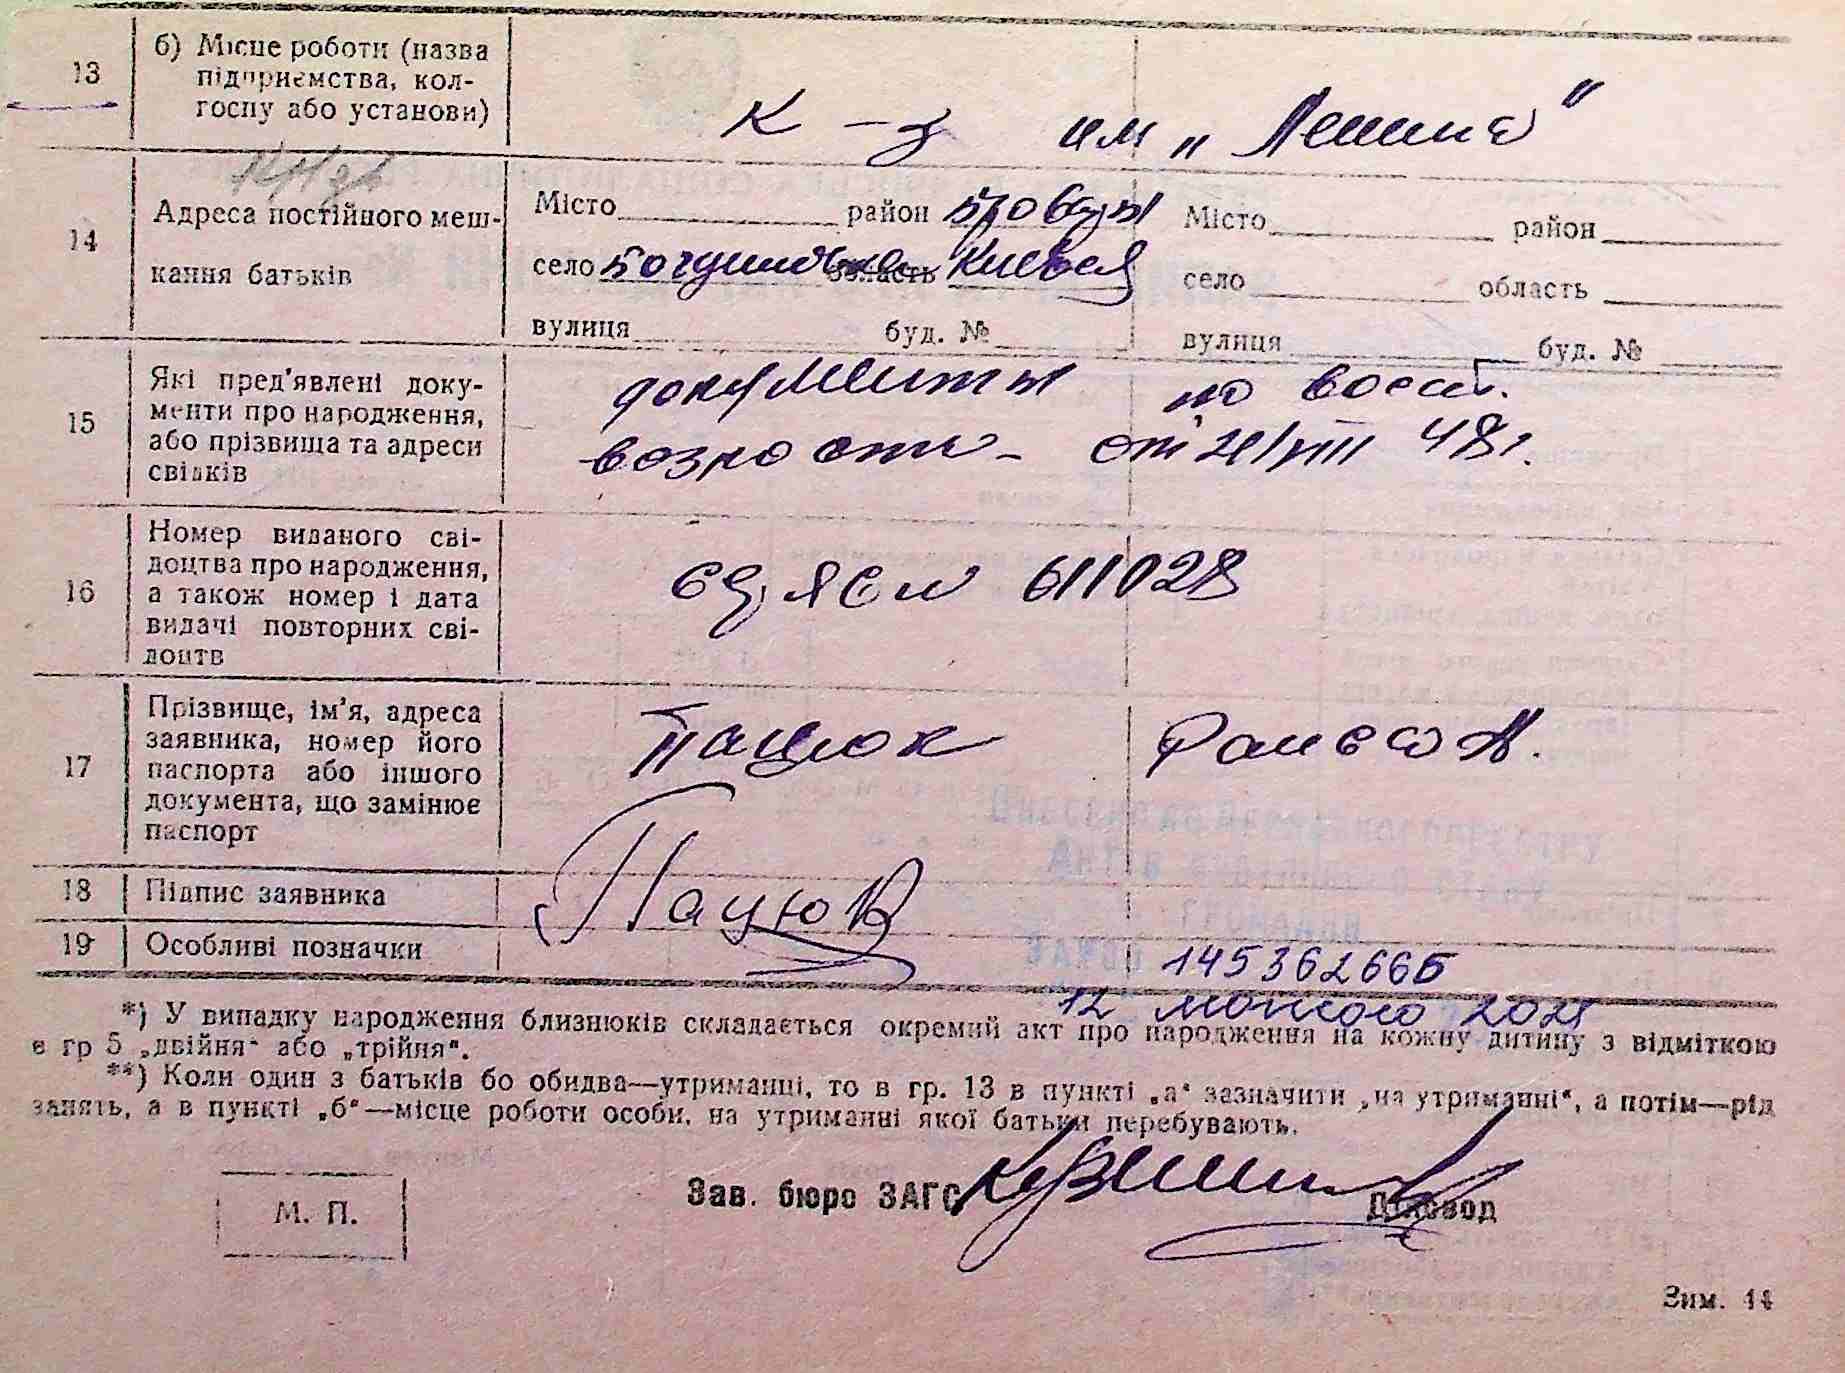 13 б) Місце роботи (назва
підприємства, кол-
госпу або установи)
К-з им „Ленина"
14 Адреса постійного меш-
кання батьків
Місто район Бровары Місто район
село область Киевская село область
вулиця буд. № вулиця буд. №
15 Які пред'явлені доку-
менти про народження,
або прізвища та адреси
свідків
документы по восст.
возрасти - от 21/VIII 48 г.
16 Номер виданого сві-
доцтва про народження,
а також номер і дата
видачі повторних сві-
доцтв
611028
17 Прізвище, ім'я, адреса
заявника, номер його
паспорта або іншого
документа, що замінює
паспорт
Пацюк
18 Підпис заявника
Пацюк
19 Особливі позначки
145362665
12 лютого 2021
*) У випадку народження близнюків складається окремий акт про народження на кожну дитину з відміткою
в гр 5 „двійня" або „трійня".
**) Коли один з батьків бо обидва—утриманці, то в гр. 13 в пункті „а" зазначити „на утриманні", а потім—рід
занять, а в пункті „б"—місце роботи особи, на утриманні якої батьки перебувають.
М. П.
Зав. бюро ЗАГС Діловод
Зим. 14